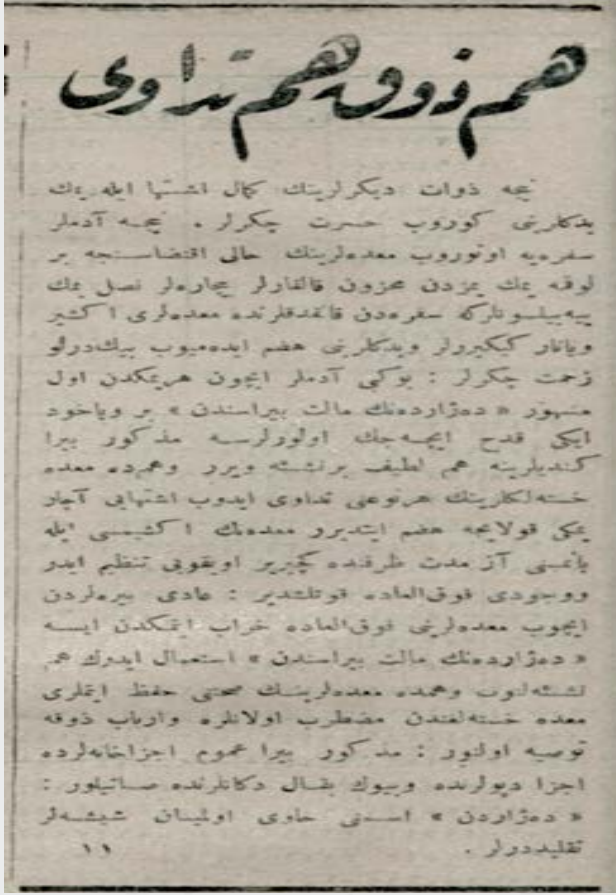 هم ذوق هم تداوی
نیجه ذوات دیکرلرینك کمال اشتها ایله یمك
یدکلرینی کوروب حسرت چکرلر . نیجه آدملر
سفره‌یه اوتوروب معده‌لرینك حالی اقتضاسنجه بر
لوقه یمك یمزدن محزون قالقارلر بیچاره‌لر نصل یمك
ییه‌بیلسونلرکه سفره‌دن قالقدقلرنده معده‌لری اکشیر
ویانار کیکیرولر ویدکلرینی هضم ایده‌میوب بیك‌درلو
زحمت چکرلر : بوکبی آدملر ایچون هریمکدن اول
مشهور « ده‌ژارده‌نك مالت بیراسندن » بر ویاخود
ایکی قدح ایچه‌جك اولورلرسه مذکور بیرا
کندیلرینه هم لطیف برنشئه ویرر وهمده معده
خسته‌لکلرینك هرنوعنی تداوی ایدوب اشتهایی آچار
یمکی قولایجه هضم ایتدیرر معده‌نك اکشیمسی ایله
یانمسنی آز مدت ظرفنده کچیریر اویقویی تنظیم ایدر
ووجودی فوق‌العاده قوتلندیر : عادی بیره‌لردن
ایچوب معده‌لرینی فوق‌العاده خراب ایتمکدن ایسه
« ده‌ژارده‌نك مالت بیراسندن » استعمال ایدرك هم
نشئه‌لنوب وهمده معده‌لرینك صحتنی حفظ ایتملری
معده خسته‌لغندن مضطرب اولانلره وارباب ذوقه
توصیه اولنور : مذکور بیرا عموم اجزاخانه‌لرده
اجزا دپولرنده وبیوك بقال دکانلرنده صاتیلور :
« ده‌ژاردن » اسمنی حاوی اولمیان شیشه‌لر
تقلیددرلر .
١١